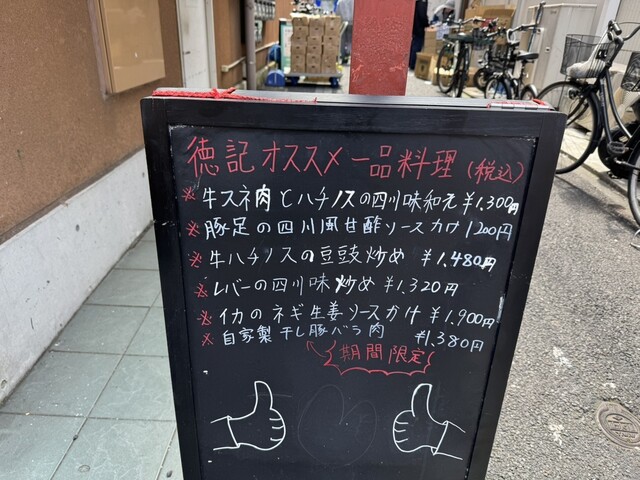 徳記オススメ一品料理(税込)
※牛スネ肉とハチノスの四川味和え¥1,300円
※豚足の四川風甘酢ソースカケ1200円
※牛ハチノスの豆豉炒め ¥1,480円
※レバーの四川味炒め¥1,320円
※イカのネギ生姜ソースかけ¥1,900円
※自家製干し豚バラ肉 ¥1,380円
期間限定